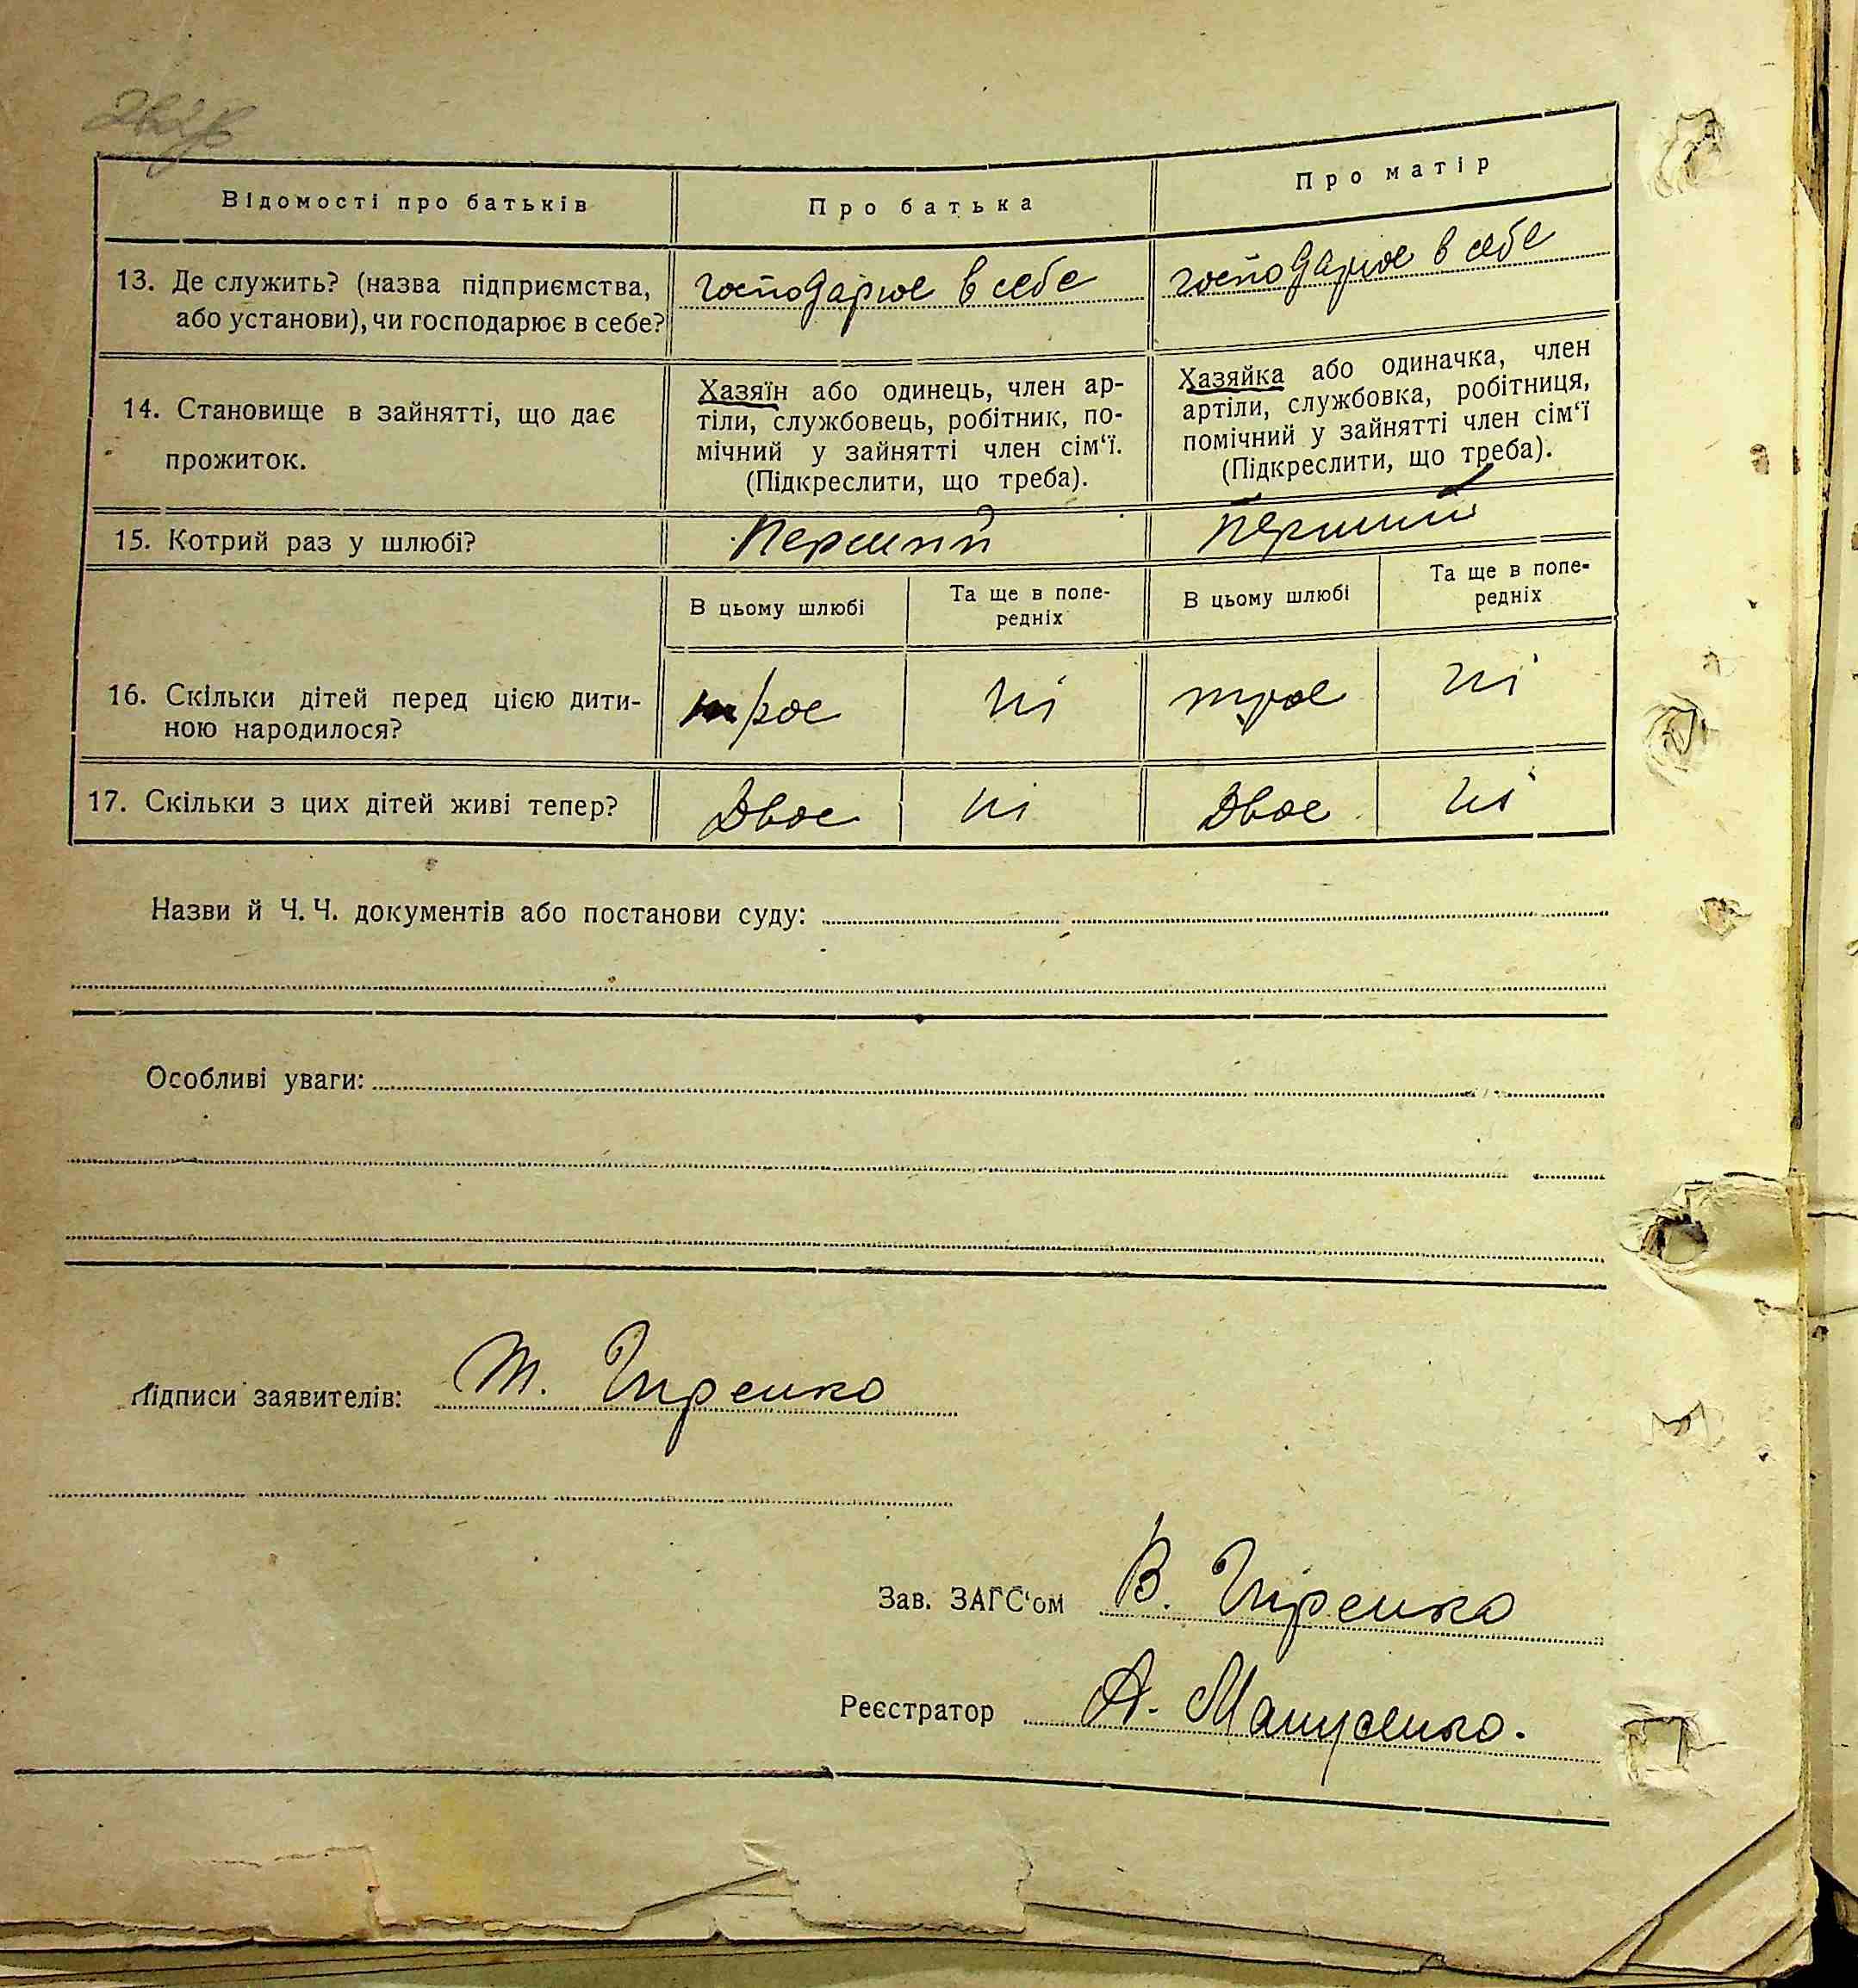 Відомості про батьків Про батька Про матір
13. Де служить? (назва підприємства, або установи), чи господарює в себе?
господарює в себе
господарює в себе
14. Становище в зайнятті, що дає
прожиток.
Хазяїн або одинець, член ар-
тіли, службовець, робітник, по-
мічний у зайнятті член сім‘ї.
(Підкреслити, що треба).
Хазяйка або одиначка, член
артіли, службовка, робітниця,
помічний у зайнятті член сім‘ї
(Підкреслити, що треба).
15. Котрий раз у шлюбі? Перший Перший
В цьому шлюбі Та ще в попе-
редніх В цьому шлюбі Та ще в попе-
редніх
16. Скільки дітей перед цією дити-
ною народилося?
трое ні трое ні
17. Скільки з цих дітей живі тепер? Двое ні Двое ні
Назви й Ч. Ч. документів або постанови суду:
Особливі уваги:
Підписи заявителів: Т. Гиренко
Зав. ЗАГС‘ом В. Гиренко
Реєстратор А. Манусенко.